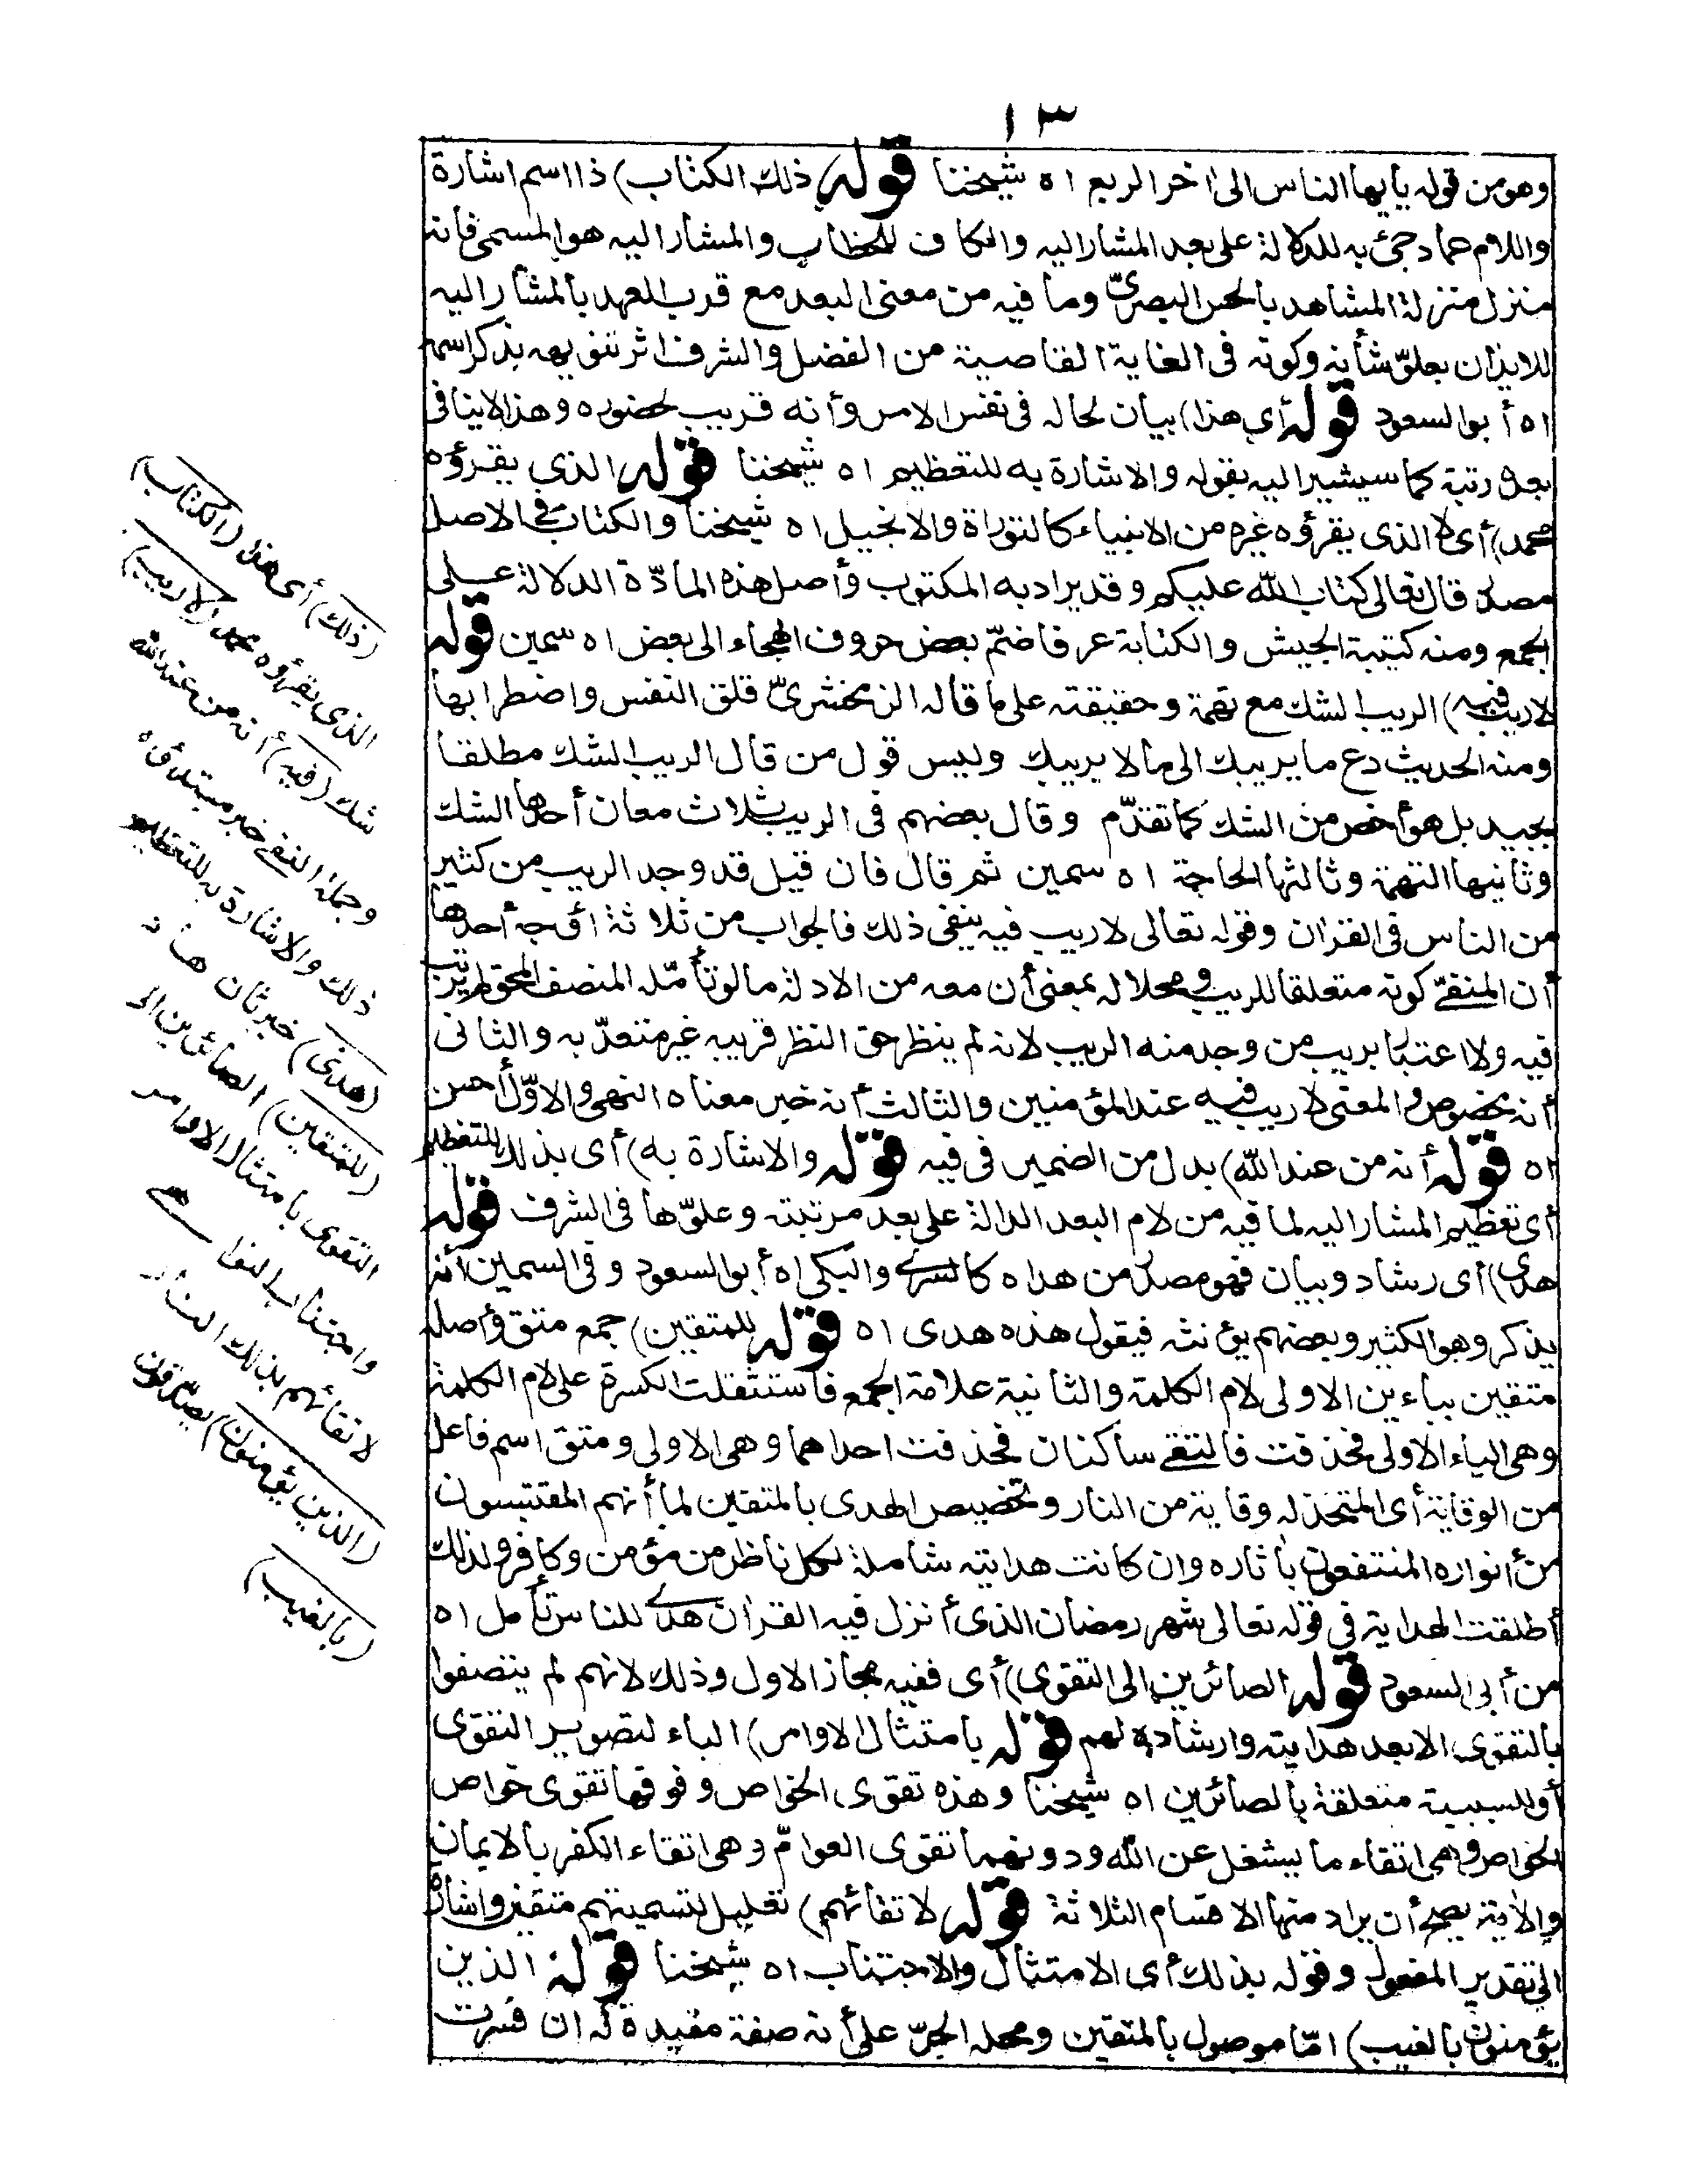 ١٣
وهو من قوله يأيها الناس الى اخر الربع اه شيخنا قوله ذلك الكتاب) ذا اسم اشارة
واللام عماد جئ به للدلالة على بعد المشار اليه والكاف للخطاب والمشار اليه هو المسمى فانه
منزل منزلة المشاهد بالحس البصرىّ وما فيه من معنى البعد مع قرب العهد بالمشار اليه
للايذان بعلوّ شأنه وكونه فى الغاية القاصية من الفضل والشرف اثر تنويهه بذكر اسمه
اه أبو السعود قوله أى هذا) بيان لحاله فى نفس الامر وأنه قريب لحضوره وهذا لا ينافى
بعد رتبته كما سيشير اليه بقوله والاشارة به للتعظيم اه شيخنا قوله الذى يقرؤه
محمد) أى لا الذى يقرؤه غيره من الانبياء كالتوراة والانجيل اه شيخنا والكتاب فى الاصل
مصدر قال تعالى كتاب الله عليكم وقد يراد به المكتوب وأصل هذه المادّة الدلالة على
الجمع ومنه كتيبة الجيش والكتابة عرفا ضمّ بعض حروف الهجاء الى بعض اه سمين قوله
لا ريب فيه) الريب الشك مع تهمة وحقيقته على ما قاله الزمخشرىّ قلق النفس واضطرابها
ومنه الحديث دع ما يريبك الى مالا يريبك وليس قول من قال الريب الشك مطلقا
بجيد بل هو أخص من الشك كما تقدّم وقال بعضهم فى الريب ثلاث معان أحدها الشك
وثانيها التهمة وثالثها الحاجة اه سمين ثم قال فان قيل قد وجد الريب من كثير
من الناس فى القران وقوله تعالى لا ريب فيه ينفى ذلك فالجواب من ثلاثة أوجه أحدها
أن المنفىّ كونه متعلقا للريب ومحلا له بمعنى أن معه من الادلة ما لو تأمّله المنصف المحق لم يرتب
فيه ولا اعتبار بريب من وجد منه الريب لانه لم ينظر حق النظر فريبه غير معتدّ به والثانى
أنه مخصوص والمعنى لا ريب فيه عند المؤمنين والثالث أنه خبر معناه النهى والاوّل أحسن
اه قوله أنه من عند الله) بدل من الضمير فى فيه قوله والاشارة به) أى بذلك للتعظيم
أى تعظيم المشار اليه لما فيه من لام البعد الدالة على بعد مرتبته وعلوّها فى الشرف قوله
هدى) أى رشاد وبيان فهو مصدر من هداه كالسرى والبكى اه أبو السعود وفى السمين أنه
يذكر وهو الكثير وبعضهم يؤنثه فيقول هذه هدى اه قوله للمتقين) جمع متق وأصله
متقيين بياءين الاولى لام الكلمة والثانية علامة الجمع فاستثقلت الكسرة على لام الكلمة
وهى الياء الاولى فحذفت فالتقى ساكنان فحذفت احداهما وهى الاولى ومتق اسم فاعل
من الوقاية أى المتخذ له وقاية من النار وتخصيص الهدى بالمتقين لما أنهم المقتبسون
من أنواره المنتفعون بأثاره وان كانت هدايته شاملة لكل ناظر من مؤمن وكافر ولذلك
أطلقت الهداية فى قوله تعالى شهر رمضان الذى أنزل فيه القران هدى للناس تأمل اه
من أبى السعود قوله الصائرين الى التقوى) أى ففيه مجاز الاول وذلك لانهم لم يتصفوا
بالتقوى الا بعد هدايته وارشاده لهم قوله بامتثال الاوامر) الباء لتصوير التقوى
أو للسببية متعلقة بالصائرين اه شيخنا وهذه تقوى الخواص وفوقها تقوى خواص
الخواص وهى اتقاء ما يشغل عن الله ودونهما تقوى العوامّ وهى اتقاء الكفر بالايمان
والاية يصح أن يراد منها الاقسام الثلاثة قوله لاتقائهم) تعليل لتسميتهم متقين واشارة
الى تقدير المفعول وقوله بذلك أى الامتثال والاجتناب اه شيخنا قوله الذين
يؤمنون بالغيب) امّا موصول بالمتقين ومحله الجرّ على أنه صفة مقيدة له ان فسرت
(ذلك) أى هذا (الكتاب)
الذى يقرؤه محمد (لا ريب)
شك (فيه) أنه من عند الله
وجملة النفى خبر مبتدؤه
ذلك والاشارة به للتعظيم
(هدى) خبر ثان هاد
(للمتقين) الصائرين الى
التقوى بامتثال الاوامر
واجتناب النواهى
لاتقائهم بذلك النار
(الذين يؤمنون) يصدّقون
(بالغيب)